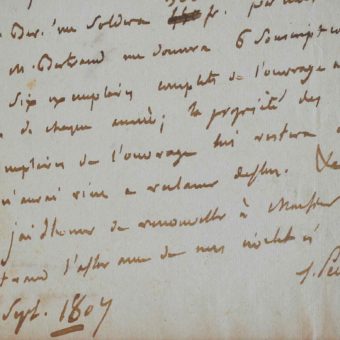 me Soldera fr. par
M. Bertrand me donnera 6 Souscript
Six exemplaires complets de l'ouvrage
de chaque année; la propriété des
mplaires de l'ouvrage lui restera
n'aurai rien a reclamer dessus.
j'ai l'honneur de renouveller à Monsieur
trand l'assurance de mes
Sept. 1807